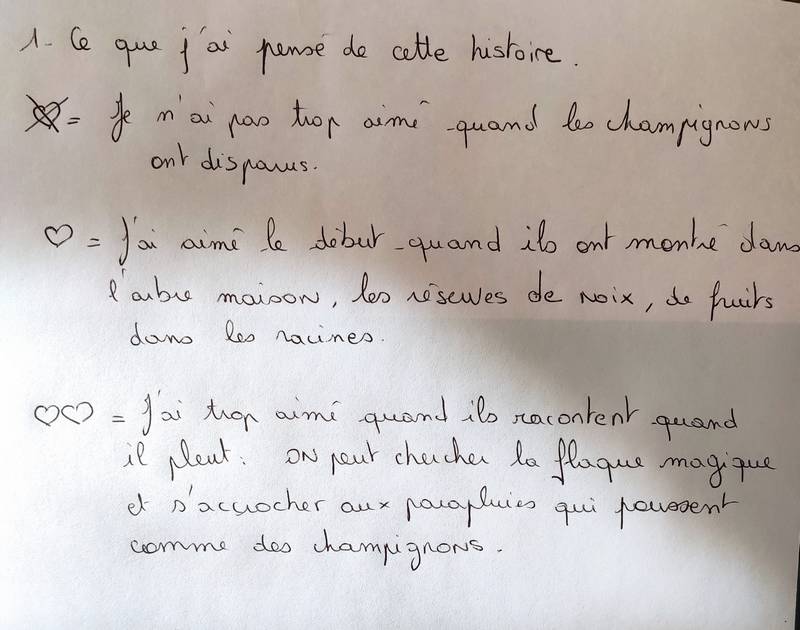 1- Ce que j'ai pensé de cette histoire.
= Je n'ai pas trop aimé quand les champignons
ont disparus.
♡ = J'ai aimé le début quand ils ont montré dans
l'arbre maison, les réserves de noix, de fruits
dans les racines.
♡♡ = J'ai trop aimé quand ils racontent quand
il pleut: on peut chercher la flaque magique
et s'accrocher aux parapluies qui poussent
comme des champignons.